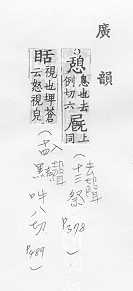 廣韻
憩 息也去例切六 上同
視也埤蒼云怒視皃
(去聲 十三祭 P378)
(入聲 十四黠 八切 P489)